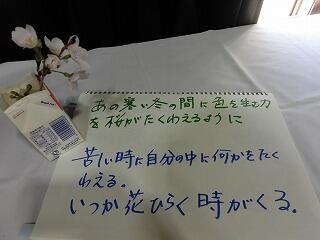 あの寒い冬の間に色を生む力
を桜がたくわえるように
苦しい時に自分の中に何かをたく
わえる。
いつか花ひらく時がくる。